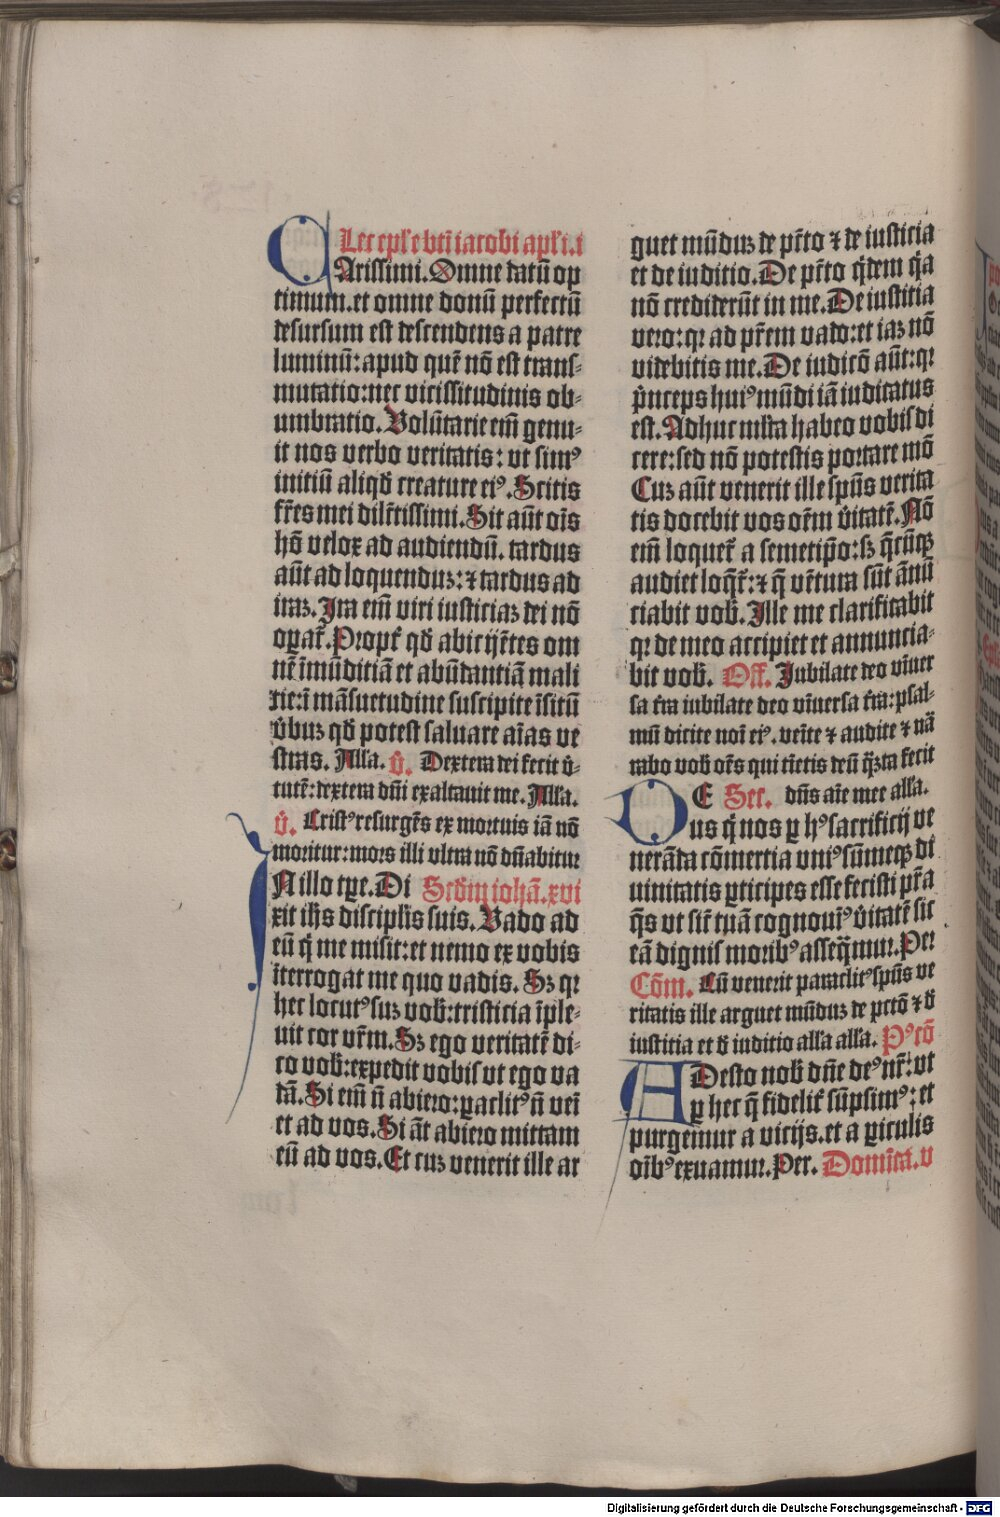 Lec eples bti iacobi apli. i
CArissimi. Omne datū op
timum. et omne donū perfectū
desursum est descendens a patre
luminū: apud quē nō est trans-
mutatio: nec vicissitudinis ob-
umbratio. Volūtarie eī genu-
it nos verbo veritatis: vt sim⁹
initiū aliqđ creature ei⁹. Scitis
frēs mei dilc̄tissimi. Sit aūt oīs
hō velox ad audiendū. tardus
aūt ad loquenduz: ⁊ tardus ad
iraz. Ira em̄ viri iusticiaz dei nō
oꝑat̄. Propt̄ qđ abicijētes om
nē īmūditiā et abūdantiā mali
tie: ī māsuetudine suscipite īsitū
v̄buz qđ potest saluare aīas ve
stras. Alla. v̄. Dextera dei fecit v̄-
tutē: dextera dn̄i exaltauit me. Alla.
v̄. Crist⁹ resurgēs ex mortuis iā nō
moritur: mors illi vltra nō dn̄abitur
IN illo tꝑe. Di Scdm iohā. xvi
xit ihs discipĺis suis. Vado ad
eū q̄ me misit: et nemo ex vobis
īterrogat me quo vadis. Sz qꝛ
hec locut⁹ suz vob̄: tristicia īple-
uit cor vr̄m. Sz ego veritatē di-
co vob̄: expedit vobis vt ego va
dā. Si em̄ n̄ abiero: ꝑaclit⁹ n̄ veīt
et ad vos. Si āt abiero mittam
eū ad vos. Et cuz venerit ille ar
guet mūduz de pc̄to ⁊ de iusticia
et de iuditio. De pc̄to q̄dem q̄a
nō crediderūt in me. De iustitia
vero: qꝛ ad pr̄em vado: et iaz nō
videbitis me. De iudicō aūt: qꝛ
p̄nceps hui⁹ mūdi iā iudicatus
est. Adhuc ml̄ta habeo vobis di
cere: sed nō potestis portare mō
Cuz aūt venerit ille spūs verita
tis docebit vos oēm v̄itatē. Nō
em̄ loquet̄ a semetip̄o: sꝫ q̄cūqꝫ
audiet loq̄t̄: ⁊ q̄ vētura sūt ānū
ciabit vob̄. Ille me clarificabit
qꝛ de meo accipiet et annuncia-
bit vob̄. Off. Iubilate deo vīuer
sa tr̄a iubilate deo vīuersa tr̄a: psal-
mū dicite noī ei⁹. veīte ⁊ audite ⁊ nā
rabo vob̄ oēs qui tīetis deū q̄ꝫta fecit
DE Sec. dn̄s aīe mee alla.
us q̄ nos ꝑ h⁹ sacrificij ve
nerāda cōmertia vni⁹ sūmeqꝫ di
uinitatis ꝑticipes esse fecisti pr̄a
q̄s vt sic̄ tuā cognoui⁹ v̄itatē sic
eā dignis morib⁹ asseq̄mur. Per
Cōm. Cū venerit paraclit⁹ spūs ve
ritatis ille arguet mūduz de pctō ⁊ đ
iustitia et đ iuditio alla alla. P⁹cō
ADesto nob̄ dn̄e de⁹ nr̄: vt
ꝑ hec q̄ fidelit̄ sūpsim⁹: et
purgemur a vicijs. et a ꝑiculis
oīb⁹ exuamur. Per. Domīca. v
Digitalisierung gefördert durch die Deutsche Forschungsgemeinschaft - DFG